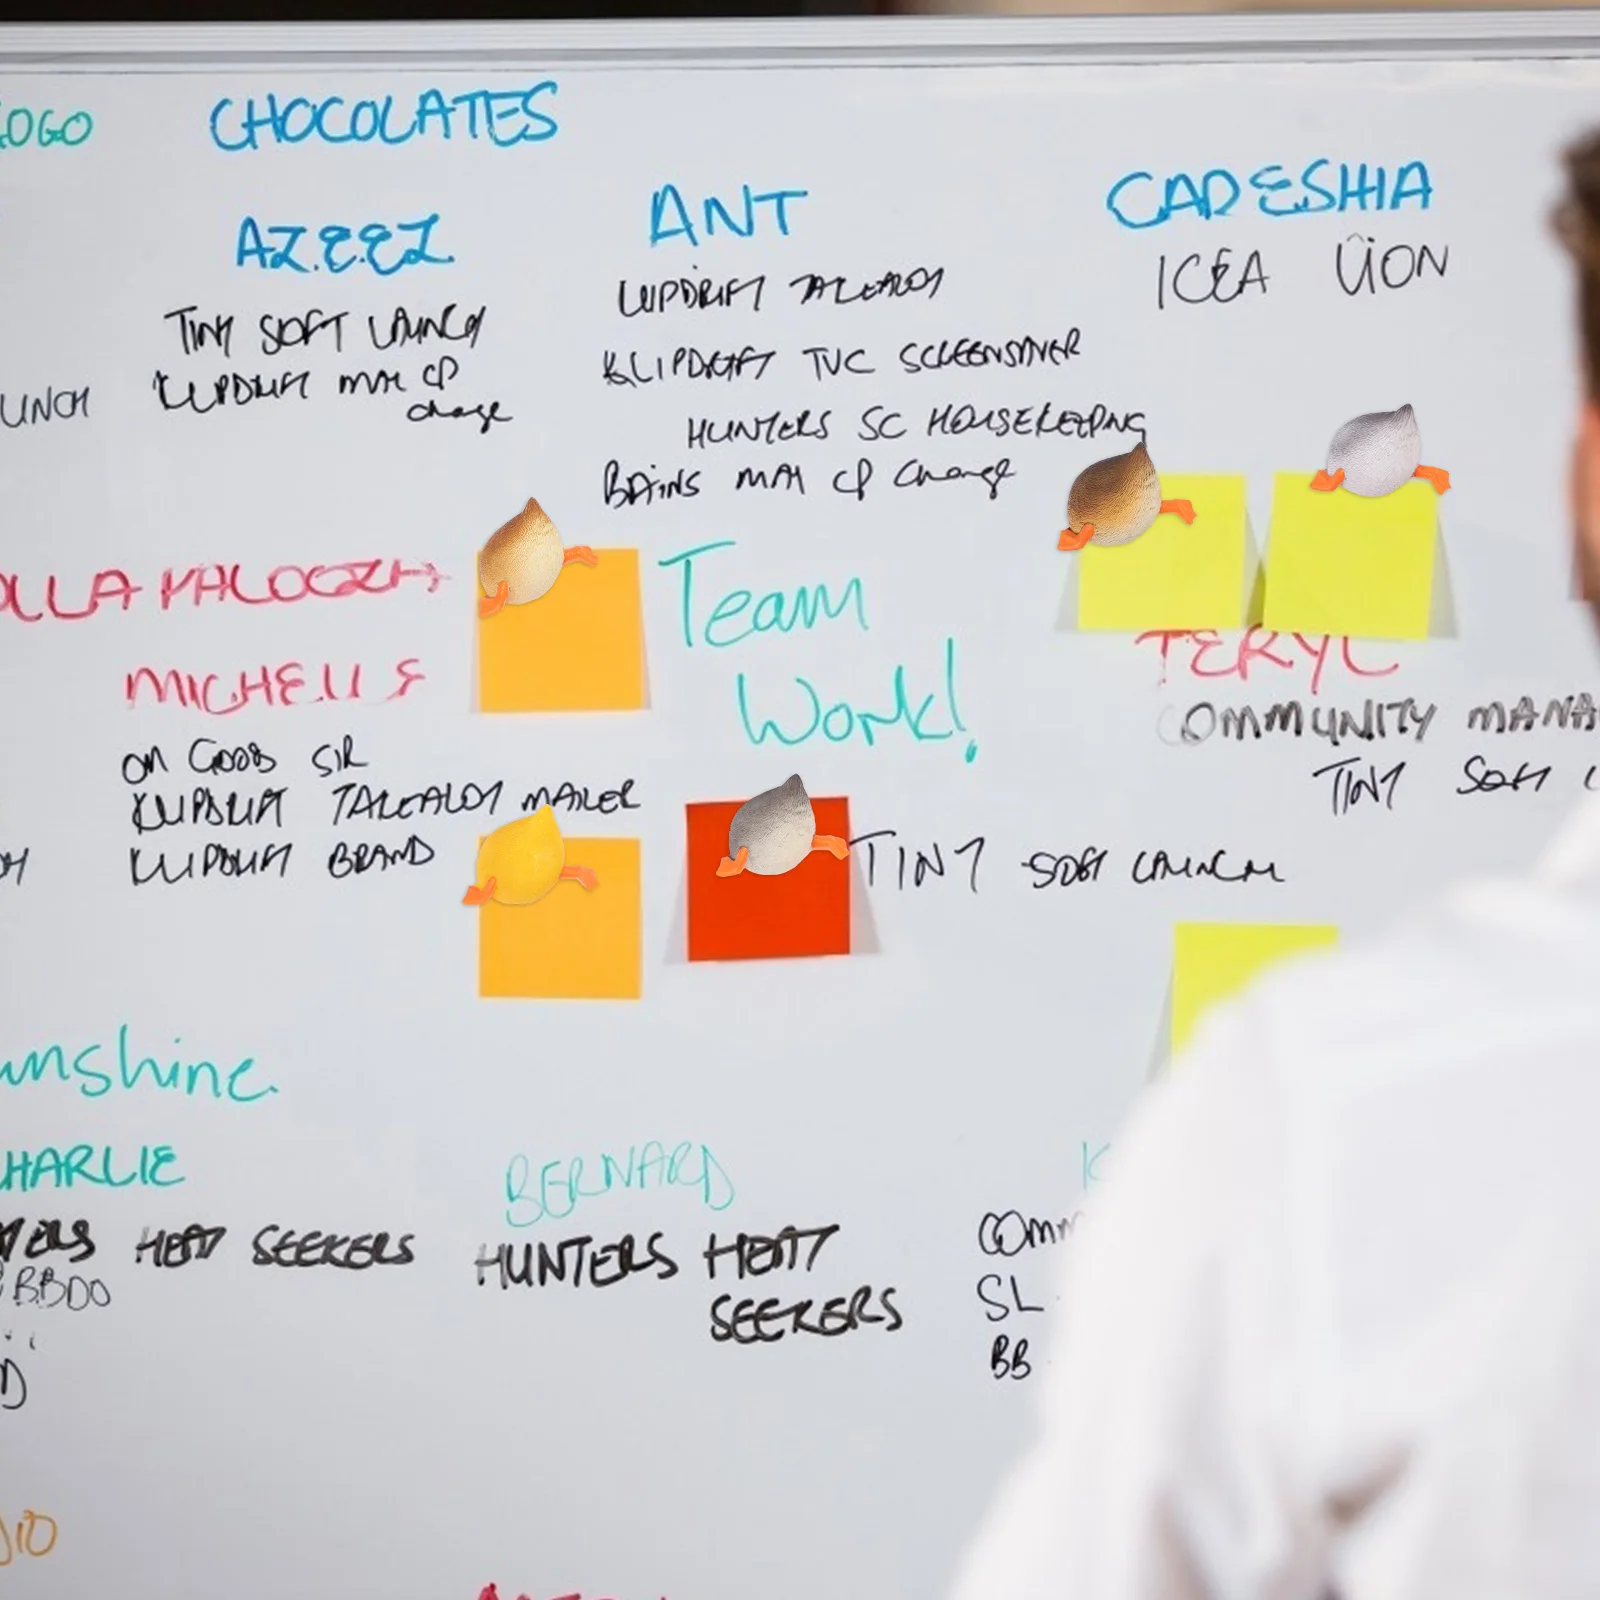 CHOCOLATES
AZEEZ
TINY SOFT LAUNCH
KLIPDRIFT MAY CP
change
ANT
KLIPDRIFT
KLIPDRIFT TVC SCREENSAVER
HUNTERS SC HOUSEKEEPING
BAINS MAY CP change
CADESHIA
ICEA LION
UNCH
MICHELLE
ON GOOB SIR
KLIPDRIFT MAILER
KLIPDRIFT BRAND
Team
Work!
TERYL
COMMUNITY MANA
TINY SOFT L
TINY SOFT LAUNCH
unshine.
HARLIE
TERS HEAT SEEKERS
BBDO
D
BERNARD
HUNTERS HEAT
SEEKERS
K
COMM
SL
BB